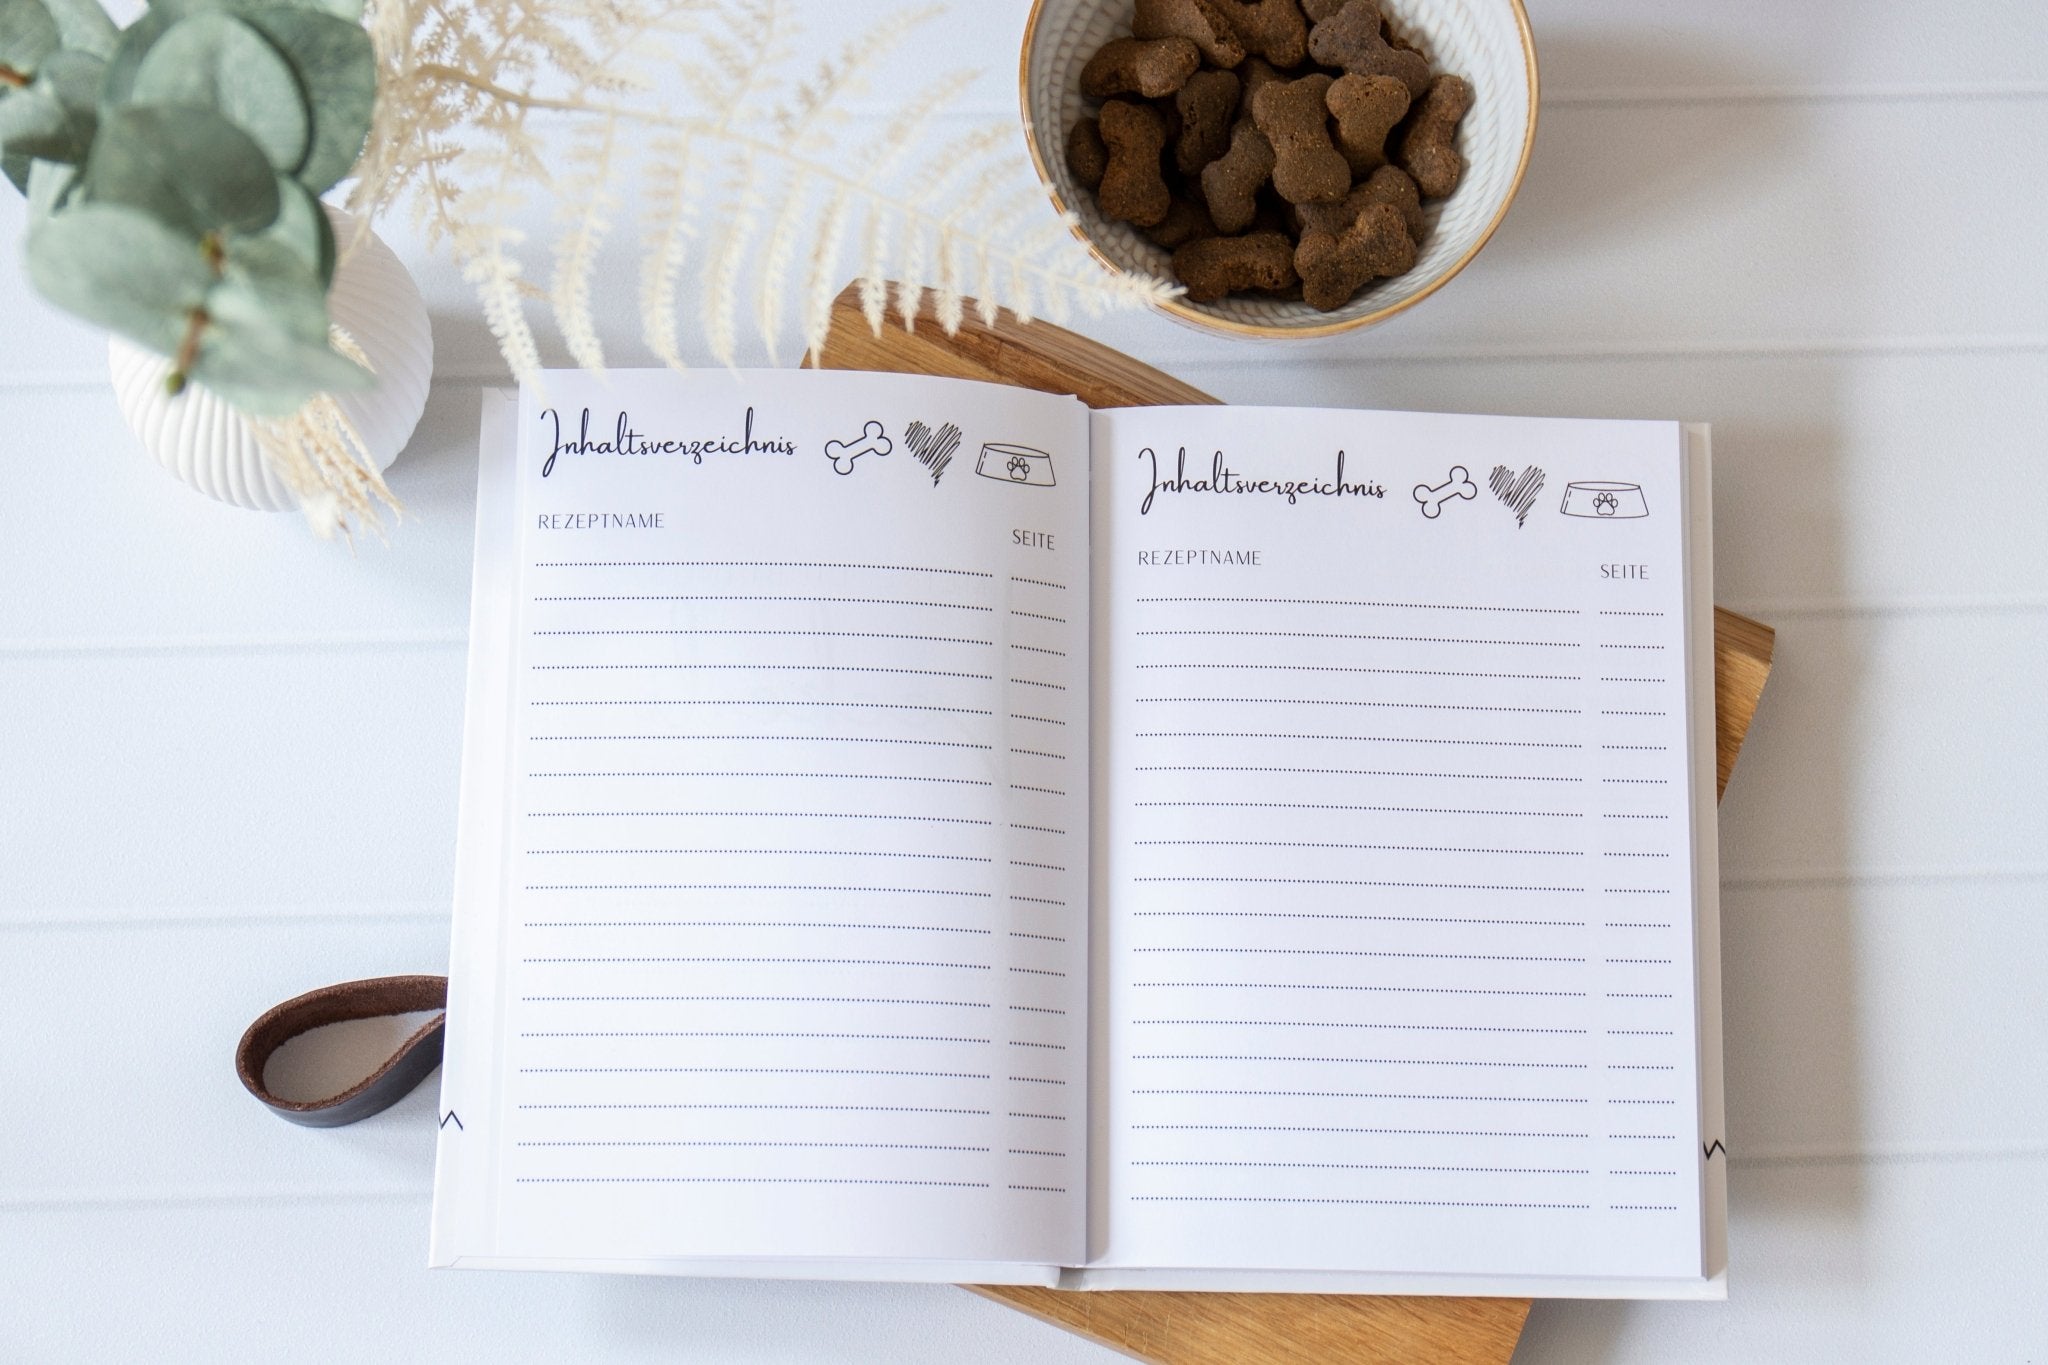 Inhaltsverzeichnis
REZEPTNAME
SEITE
Inhaltsverzeichnis
REZEPTNAME
SEITE